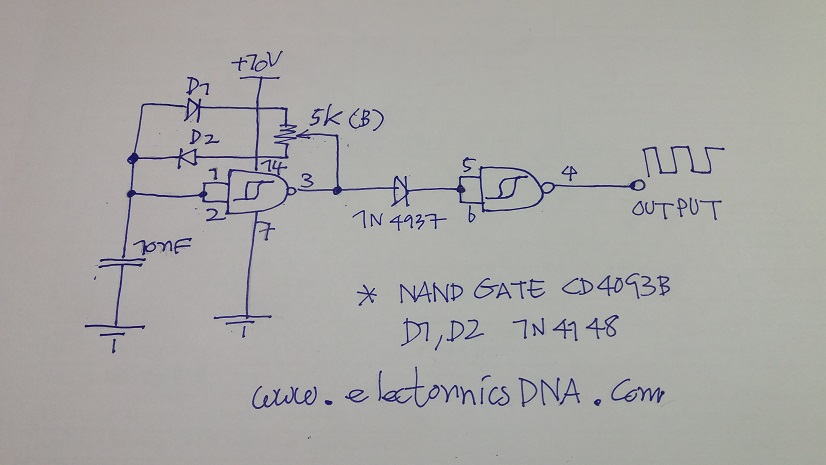 +10V
D1
5K (B)
D2
1
14
3
2
7
10nF
1N 4937
5
6
4
OUTPUT
* NAND GATE CD4093B
D1, D2 1N 4148
www.electonnicsDNA.com